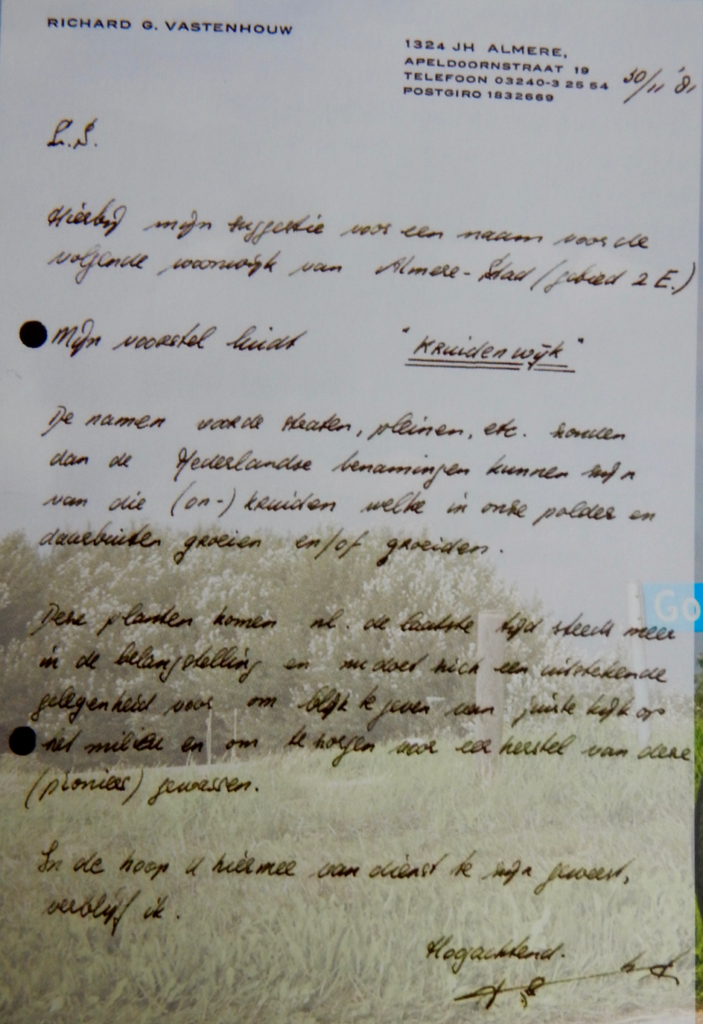 RICHARD G. VASTENHOUW
1324 JH ALMERE,
APELDOORNSTRAAT 19
TELEFOON 03240-3 25 54
POSTGIRO 1832669
30/11 '81
L.S.
Hierbij mijn suggestie voor een naam voor de
volgende woonwijk van Almere-Stad (gebied 2 E.)
Mijn voorstel luidt "Kruidenwijk"
De namen voor de straten, pleinen, etc. zouden
dan de Nederlandse benamingen kunnen zijn
van die (on-) kruiden welke in onze polder en
daarbuiten groeien en/of groeiden.
Deze planten komen nl. de laatste tijd steeds meer
in de belangstelling en nu doet zich een uitstekende
gelegenheid voor om blijk te geven van juiste kijk op
het milieu en om te zorgen voor een herstel van deze
(pionier) gewassen.
In de hoop u hiermee van dienst te zijn geweest,
verblijf ik.
Hogachtend.
Go